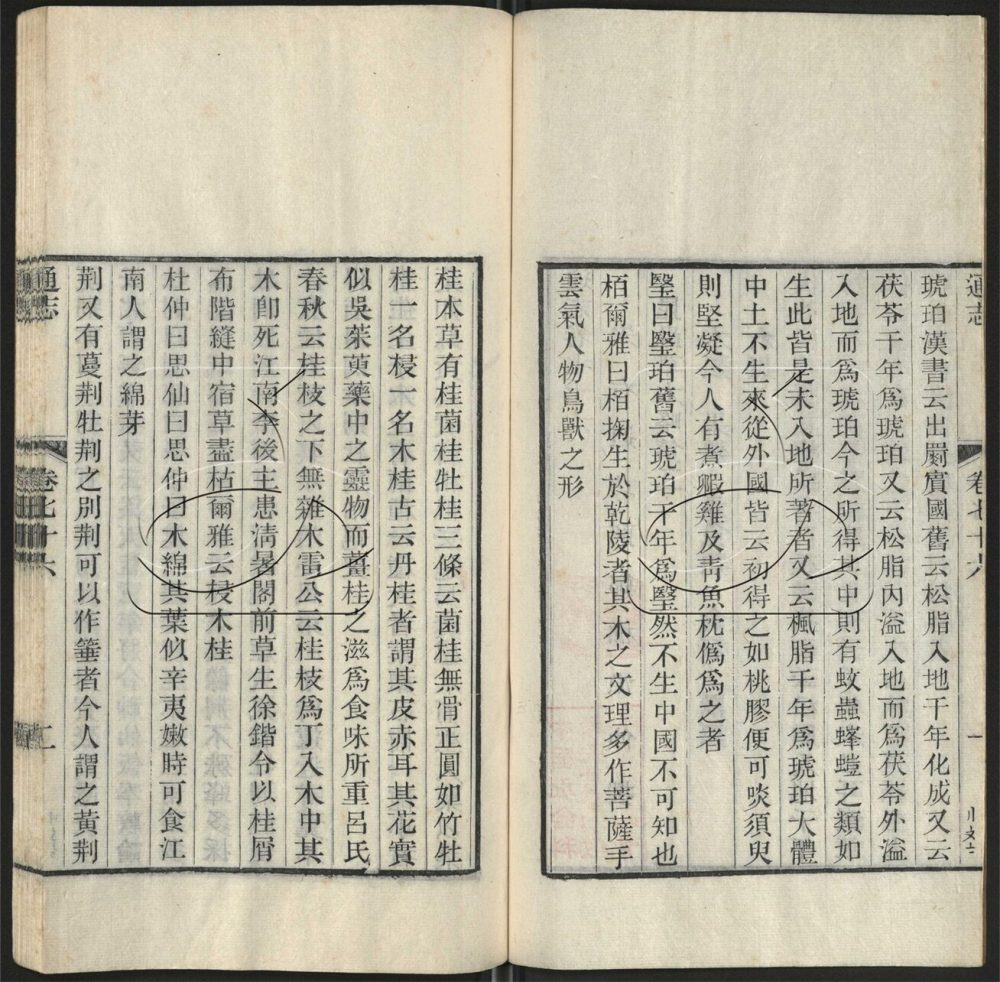 通志
卷七十六
一
琥珀漢書云出罽賓國舊云松脂入地千年化成又云
茯苓千年爲琥珀又云松脂內溢入地而爲茯苓外溢
入地而爲琥珀今之所得其中則有蚊蟲蜂螘之類如
生此皆是未入地所著者又云楓脂千年爲琥珀大體
中土不生來從外國皆云初得之如桃膠便可啖須臾
則堅凝今人有煮毈雞及靑魚枕僞爲之者
瑿曰瑿珀舊云琥珀千年爲瑿然不生中國不可知也
栢爾雅曰栢掬生於乾陵者其木之文理多作菩薩手
雲氣人物鳥獸之形
桂本草有桂菌桂牡桂三條云菌桂無骨正圓如竹牡
桂一名梫一名木桂古云丹桂者謂其皮赤耳其花實
似吳茱萸藥中之靈物而薑桂之滋爲食味所重呂氏
春秋云桂枝之下無雜木雷公云桂枝爲丁入木中其
木卽死江南李後主患淸暑閣前草生徐鍇令以桂屑
布階縫中宿草盡枯爾雅云梫木桂
杜仲曰思仙曰思仲曰木綿其葉似辛夷嫩時可食江
南人謂之綿芽
荆又有蔓荆牡荆之別荆可以作箠者今人謂之黃荆
通志
卷七十六
二